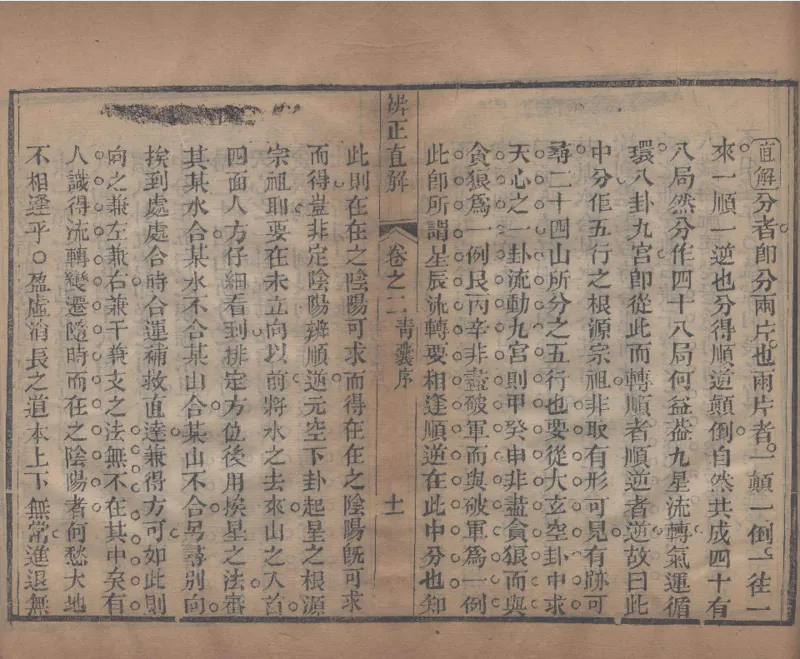 直解分者即分兩片也兩片者一顛一倒一往一
來一順一逆也分得順逆顛倒自然共成四十有
八局然分作四十八局何益葢九星流轉氣運循
環八卦九宮即從此而轉順者順逆者逆故曰此
中分作五行之根源宗祖非取有形可見有跡可
尋二十四山所分之五行也要從大玄空卦中求
天心之一卦流動九宮則甲癸申非盡貪狼而與
貪狼爲一例艮丙辛非盡破軍而與破軍爲一例
此即所謂星辰流轉要相逢順逆在此中分也知
辨正直解 卷之二 青囊序 十一
此則在在之陰陽可求而得在在之陰陽旣可求
而得豈非定陰陽辨順逆元空下卦起星之根源
宗祖耶要在未立向以前將水之去來山之入首
四面人方仔細看到排定方位後用挨星之法審
其某水合某水不合某山合某山不合另尋別向
挨到處處合時合運補救直達兼得方可如此則
向之兼左兼右兼干兼支之法無不在其中矣有
人識得流轉變遷隨時而在之陰陽者何愁大地
不相逢乎○盈虛消長之道本上下無常進退無